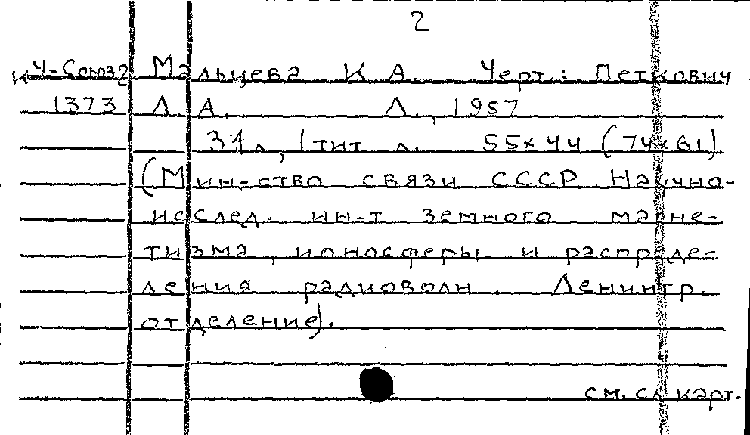 2
Ч-Союз2 Мальцева К А. Черт.: Петкович
1373 Л А. Л., 1957
31л, 1 тит л. 55x44 (74x61)
(Мин-ство связи СССР Научно-
исслед. ин-т земного магне-
тизма, ионосферы и распреде-
ления радиоволн. Ленингр.
отделение).
см. сл карт.